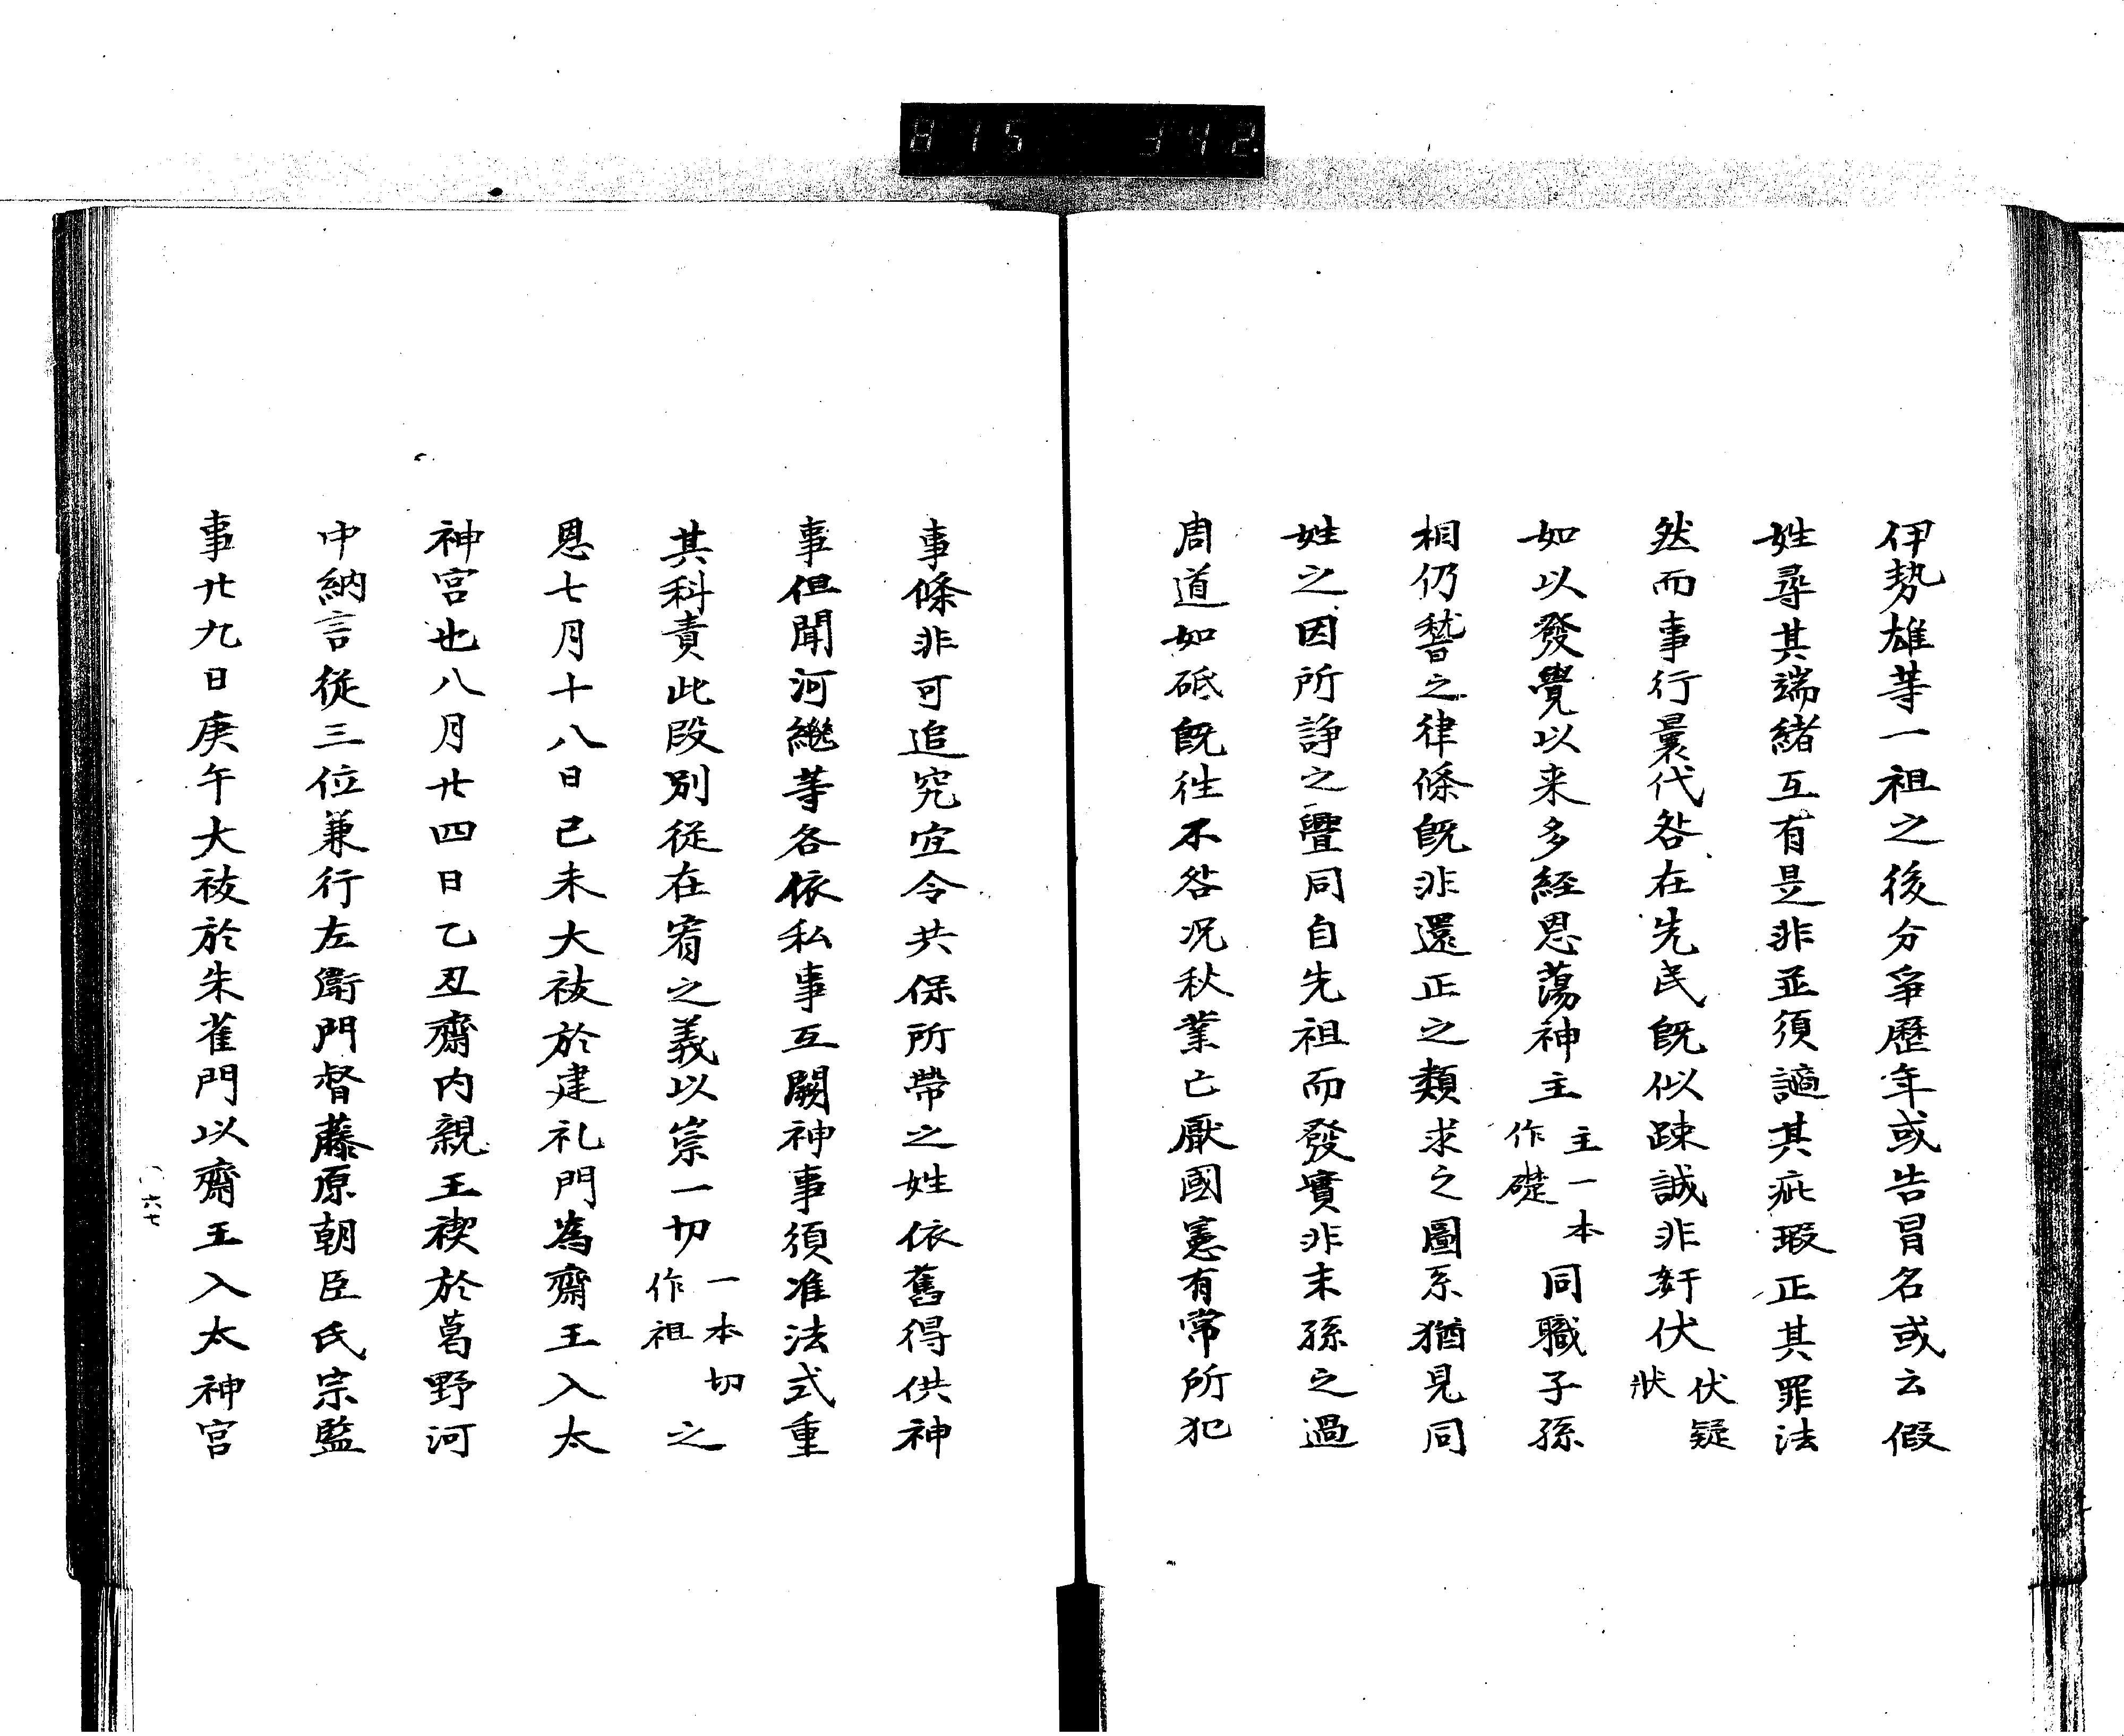 815 342
伊勢雄等一祖之後分爭歷年或告冒名或云假
姓尋其端緒互有是非並須謫其疵瑕正其罪法
然而事行曩代咎在先民既似疎誠非奸伏伏疑狀
如以發覺以来多經恩蕩神主主一本作礎同職子孫
相仍替之律條既非還正之類求之圖系猶見同
姓之因所諍之舋同自先祖而發實非末孫之過
周道如砥既往不咎况秋業亡厭國憲有常所犯
事條非可追究宜令共保所帶之姓依舊得供神
事但聞河繼等各依私事互闕神事須准法式重
其科責此段別從在宥之義以崇一切一本切作祖之
恩七月十八日己未大祓於建礼門為齋王入太
神宮也八月廿四日乙丑齋内親王禊於葛野河
中納言從三位兼行左衛門督藤原朝臣氏宗監
事廿九日庚午大祓於朱雀門以齋王入太神宮
六七